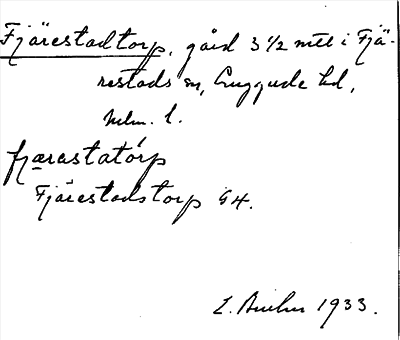 Fjärestadtorp, gård 3 1/2 mtl i Fjä-
restads sn, Luggude hd,
Mlm. l.
fjærastatɔrp
Fjärestadstorp G4.
1933.